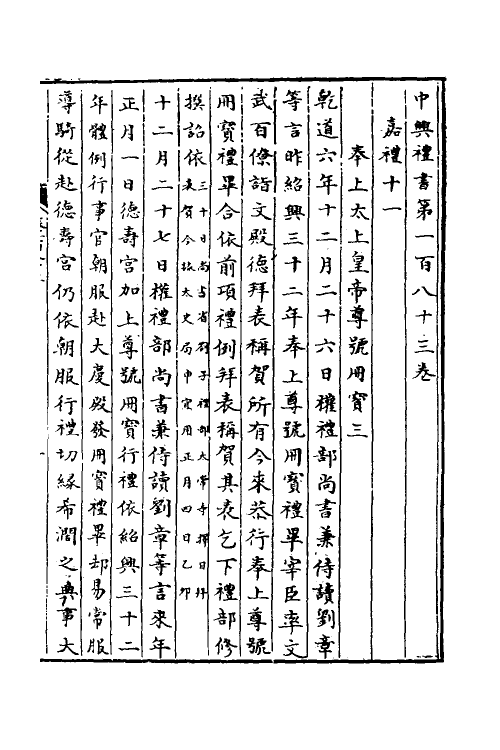 中興禮書第一百八十三卷
嘉禮十一
奉上太上皇帝尊號冊寶三
乾道六年十二月二十六日權禮部尚書兼侍讀劉章
等言昨紹興三十二年奉上尊號冊寶禮畢宰臣率文
武百僚詣文殿德拜表稱賀所有今來恭行奉上尊號
冊寶禮畢合依前項禮例拜表稱賀其表乞下禮部修
撰詔依三十日尚書省劄子禮部太常寺擇日拜
表賀今據太史局申定用正月四日乙卯
十二月二十七日權禮部尚書兼侍讀劉章等言來年
正月一日德壽宮加上尊號冊寶行禮依紹興三十二
年體例行事官朝服赴大慶殿發冊寶禮畢却易常服
導騎從赴德壽宮仍依朝服行禮切緣希濶之典事大